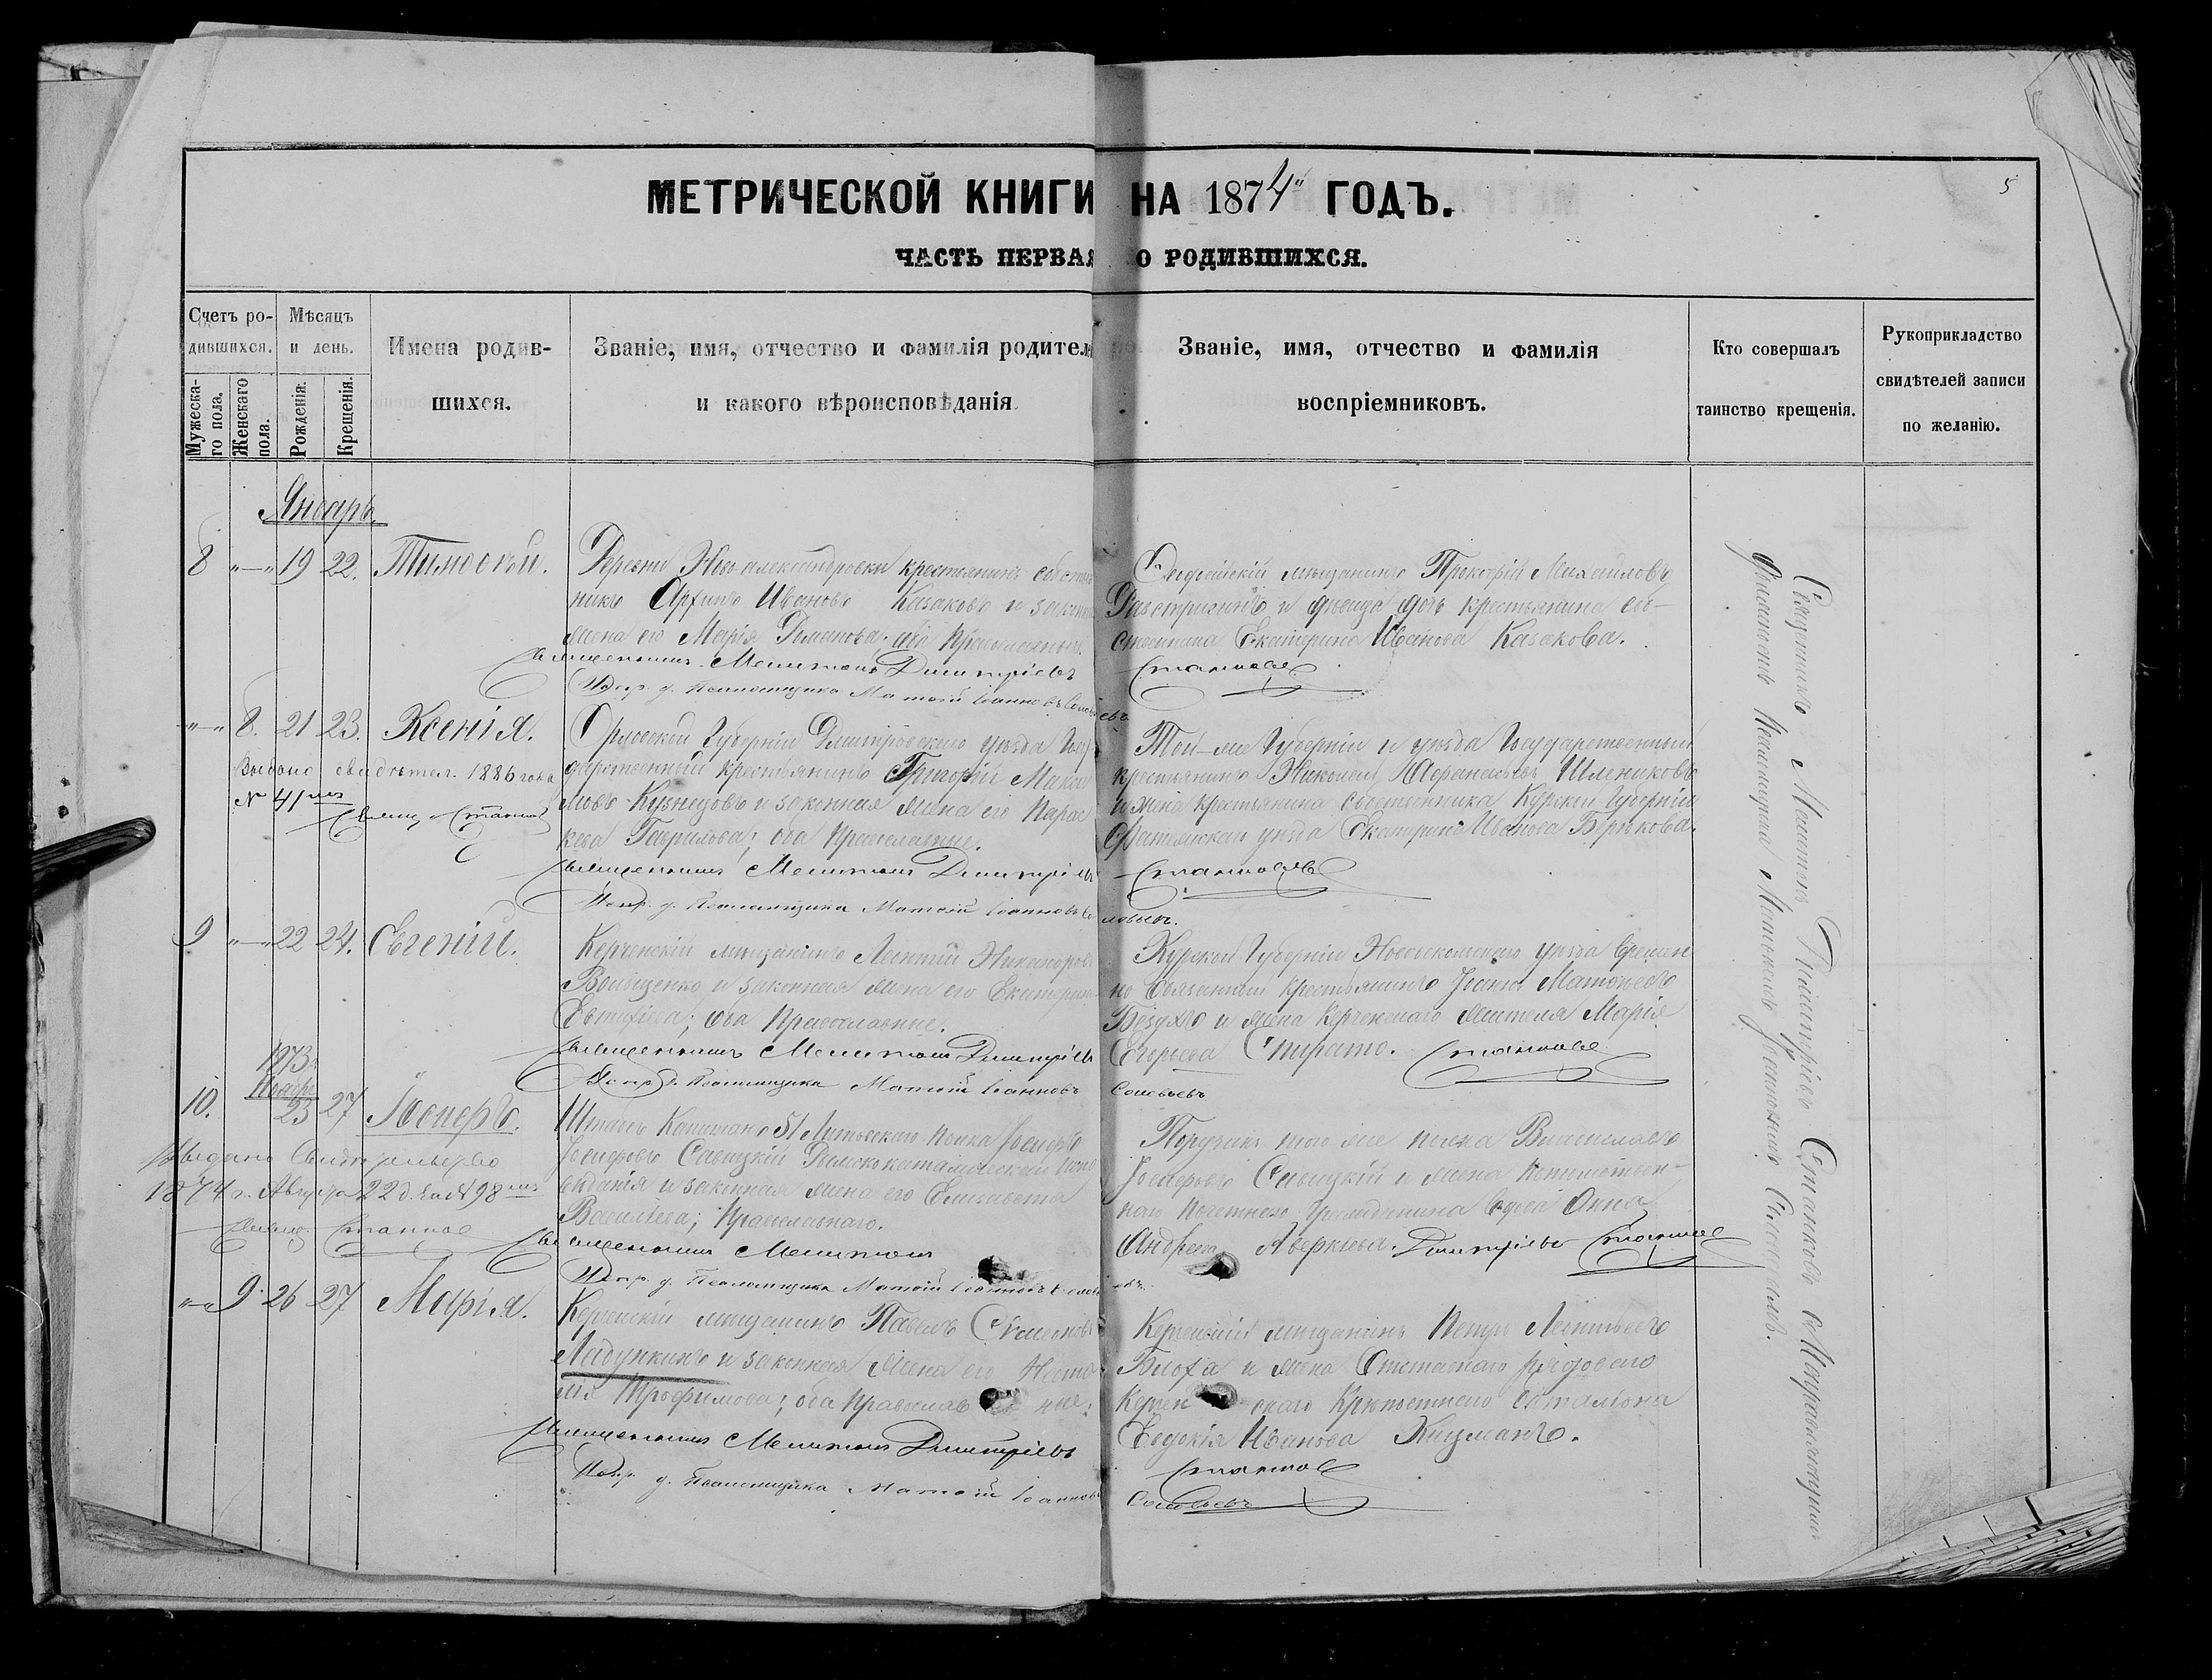 МЕТРИЧЕСКОЙ КНИГИ НА 1874 ГОДЪ.
5
ЧАСТЬ ПЕРВАЯ О РОДИВШИХСЯ.
Счетъ ро-
дившихся.
Мужеска-
го пола.
Женскаго
пола.
Мѣсяцъ
и день.
Рожденія.
Крещенія.
Имена родив-
шихся.
Званіе, имя, отчество и фамилія родителей
и какого вѣроисповѣданія
Званіе, имя, отчество и фамилія
воспріемниковъ.
Кто совершалъ
таинство крещенія.
Рукоприкладство
свидѣтелей записи
по желанію.
Январь
8 19 22. Тимофей.
Деревни Ново-александровки крестьянинъ собствен
никъ Ивановъ Казаковъ и законная
жена его Марія Романова; оба Православные.
Священникъ Мелитонъ Димитріевъ Станковъ
Испр. д. Псаломщика Матѳій Іоанновъ Соловьевъ
мѣщанинъ Прокофій Михайловъ
и дѣвица дочь крестьянина соб-
ственника Екатерина Иванова Казакова.
8. 21 23. Ксенія.
Выдано свидѣтел. 1886 года
№ 41
Свящ. Станков
Орловской Губерніи Дмитровскаго уѣзда Госу
дарственный крестьянинъ Григорій
Кузнецовъ и законная жена его Парас
кева Гаврилова; оба Православные.
Священникъ Мелитонъ Димитріевъ Станковъ
Испр. д. Псаломщика Матѳій Іоанновъ Соловьевъ.
Той-же Губерніи и уѣзда Государственный
крестьянинъ Николай Афанасьевъ Шлениковъ
и жена крестьянина собственника Курской Губерніи
Фатежскаго уѣзда Екатерина Иванова Бирюкова.
9 22 24. Евгеній.
Керченскій мѣщанинъ Леонтій Никаноровъ
и законная жена его Екатерина
Евтафіева; оба Православные.
Священникъ Мелитонъ Димитріевъ Станковъ
Испр. д. Псаломщика Матѳій Іоанновъ Соловьевъ
Курской Губерніи Новооскольскаго уѣзда Времен
но Обязанный крестьянинъ Іоаннъ Матвѣевъ
и жена Керченскаго жителя Марія
Егорьева Спирато.
1873
Ноябрь
10. 23 27 Іосифъ.
Выдано Свидѣтельство
1874 г. Августа 22 д. за № 98
Свящ. Станков
Штабсъ Капитанъ 51 Литовскаго полка Іосифъ
Іосифовъ Савицкій Римскокатолическаго испо
вѣданія и законная жена его Елисавета
Васильева; Православнаго.
Священникъ Мелитонъ Димитріевъ Станковъ
Испр. д. Псаломщика Матѳій Іоанновъ Соловьевъ
Поручикъ того же полка Владиславъ
Іосифовъ Савицкій и жена Потомствен-
наго Почетнаго Гражданина вдова Анна
Андреева Аверкіева.
9. 26 27 Марія.
Керченскій мѣщанинъ Павелъ Симеоновъ
Ладункинъ и законная жена его
Трофимова; оба Православные.
Священникъ Мелитонъ Димитріевъ
Испр. д. Псаломщика Матѳій Іоанновъ
Керченскій мѣщанинъ Петръ Леонтьевъ
и жена Отставнаго рядоваго
Керченскаго Крѣпостнаго баталіона
Евдокія Иванова Кицманъ.
Станковъ
Соловьевъ
Священникъ Мелитонъ Димитріевъ Станковъ
Псаломщика Матѳеемъ Іоанновымъ Соловьевымъ.